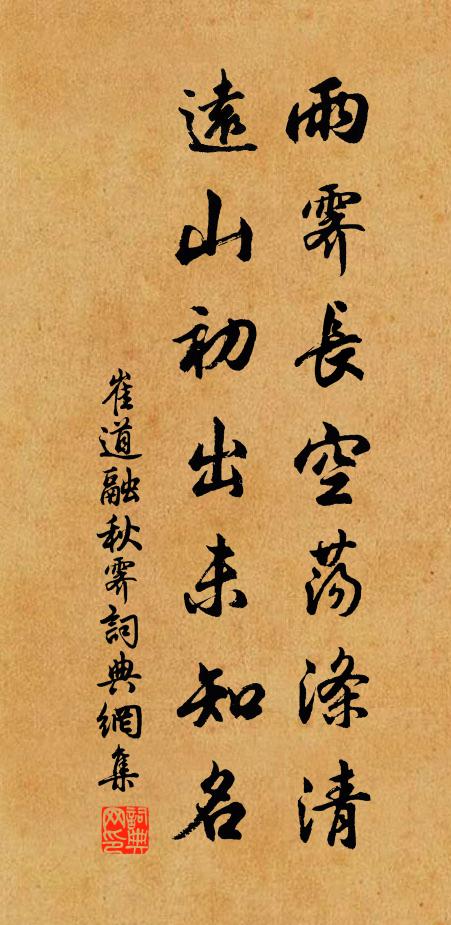 雨霽長空蕩滌清
遠山初出未知名
崔道融秋霽詞典網集
詞典網印